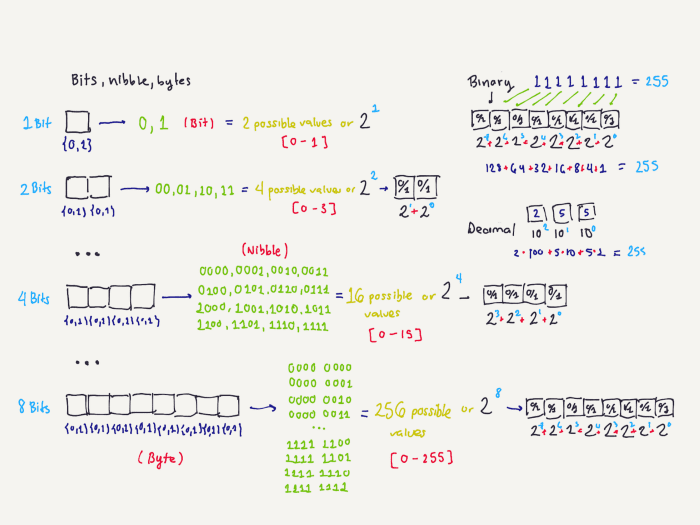 Bits, nibble, bytes
1 Bit
{0,1}
0, 1 (Bit) = 2 possible values or 2^1
[0-1]
2 Bits
{0,1} {0,1}
00, 01, 10, 11 = 4 possible values or 2^2 → 0/1 0/1
[0-3]
2^1 + 2^0
...
(Nibble)
4 Bits
{0,1}{0,1}{0,1}{0,1}
0000, 0001, 0010, 0011
0100, 0101, 0110, 0111
1000, 1001, 1010, 1011
1100, 1101, 1110, 1111
= 16 possible values or 2^4
[0-15]
0/1 0/1 0/1 0/1
2^3 + 2^2 + 2^1 + 2^0
...
8 Bits
{0,1}{0,1}{0,1}{0,1}{0,1}{0,1}{0,1}{0,1}
(Byte)
0000 0000
0000 0001
0000 0010
0000 0011
...
1111 1100
1111 1101
1111 1110
1111 1111
= 256 possible values or 2^8
[0-255]
0/1 0/1 0/1 0/1 0/1 0/1 0/1 0/1
Binary 11111111 = 255
0/1 0/1 0/1 0/1 0/1 0/1 0/1 0/1
128+64+32+16+8+4+1 = 255
2 5 5
Decimal 10^2 10^1 10^0
2·100+5·10+5·1 = 255